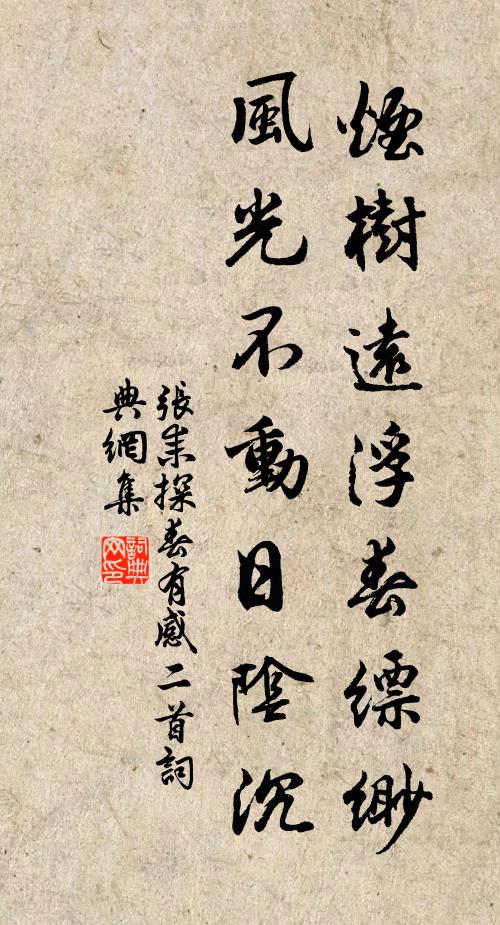 煙樹遠浮春縹緲
風光不動日陰沉
張耒探春有感二首詞
典網集
詞典網印